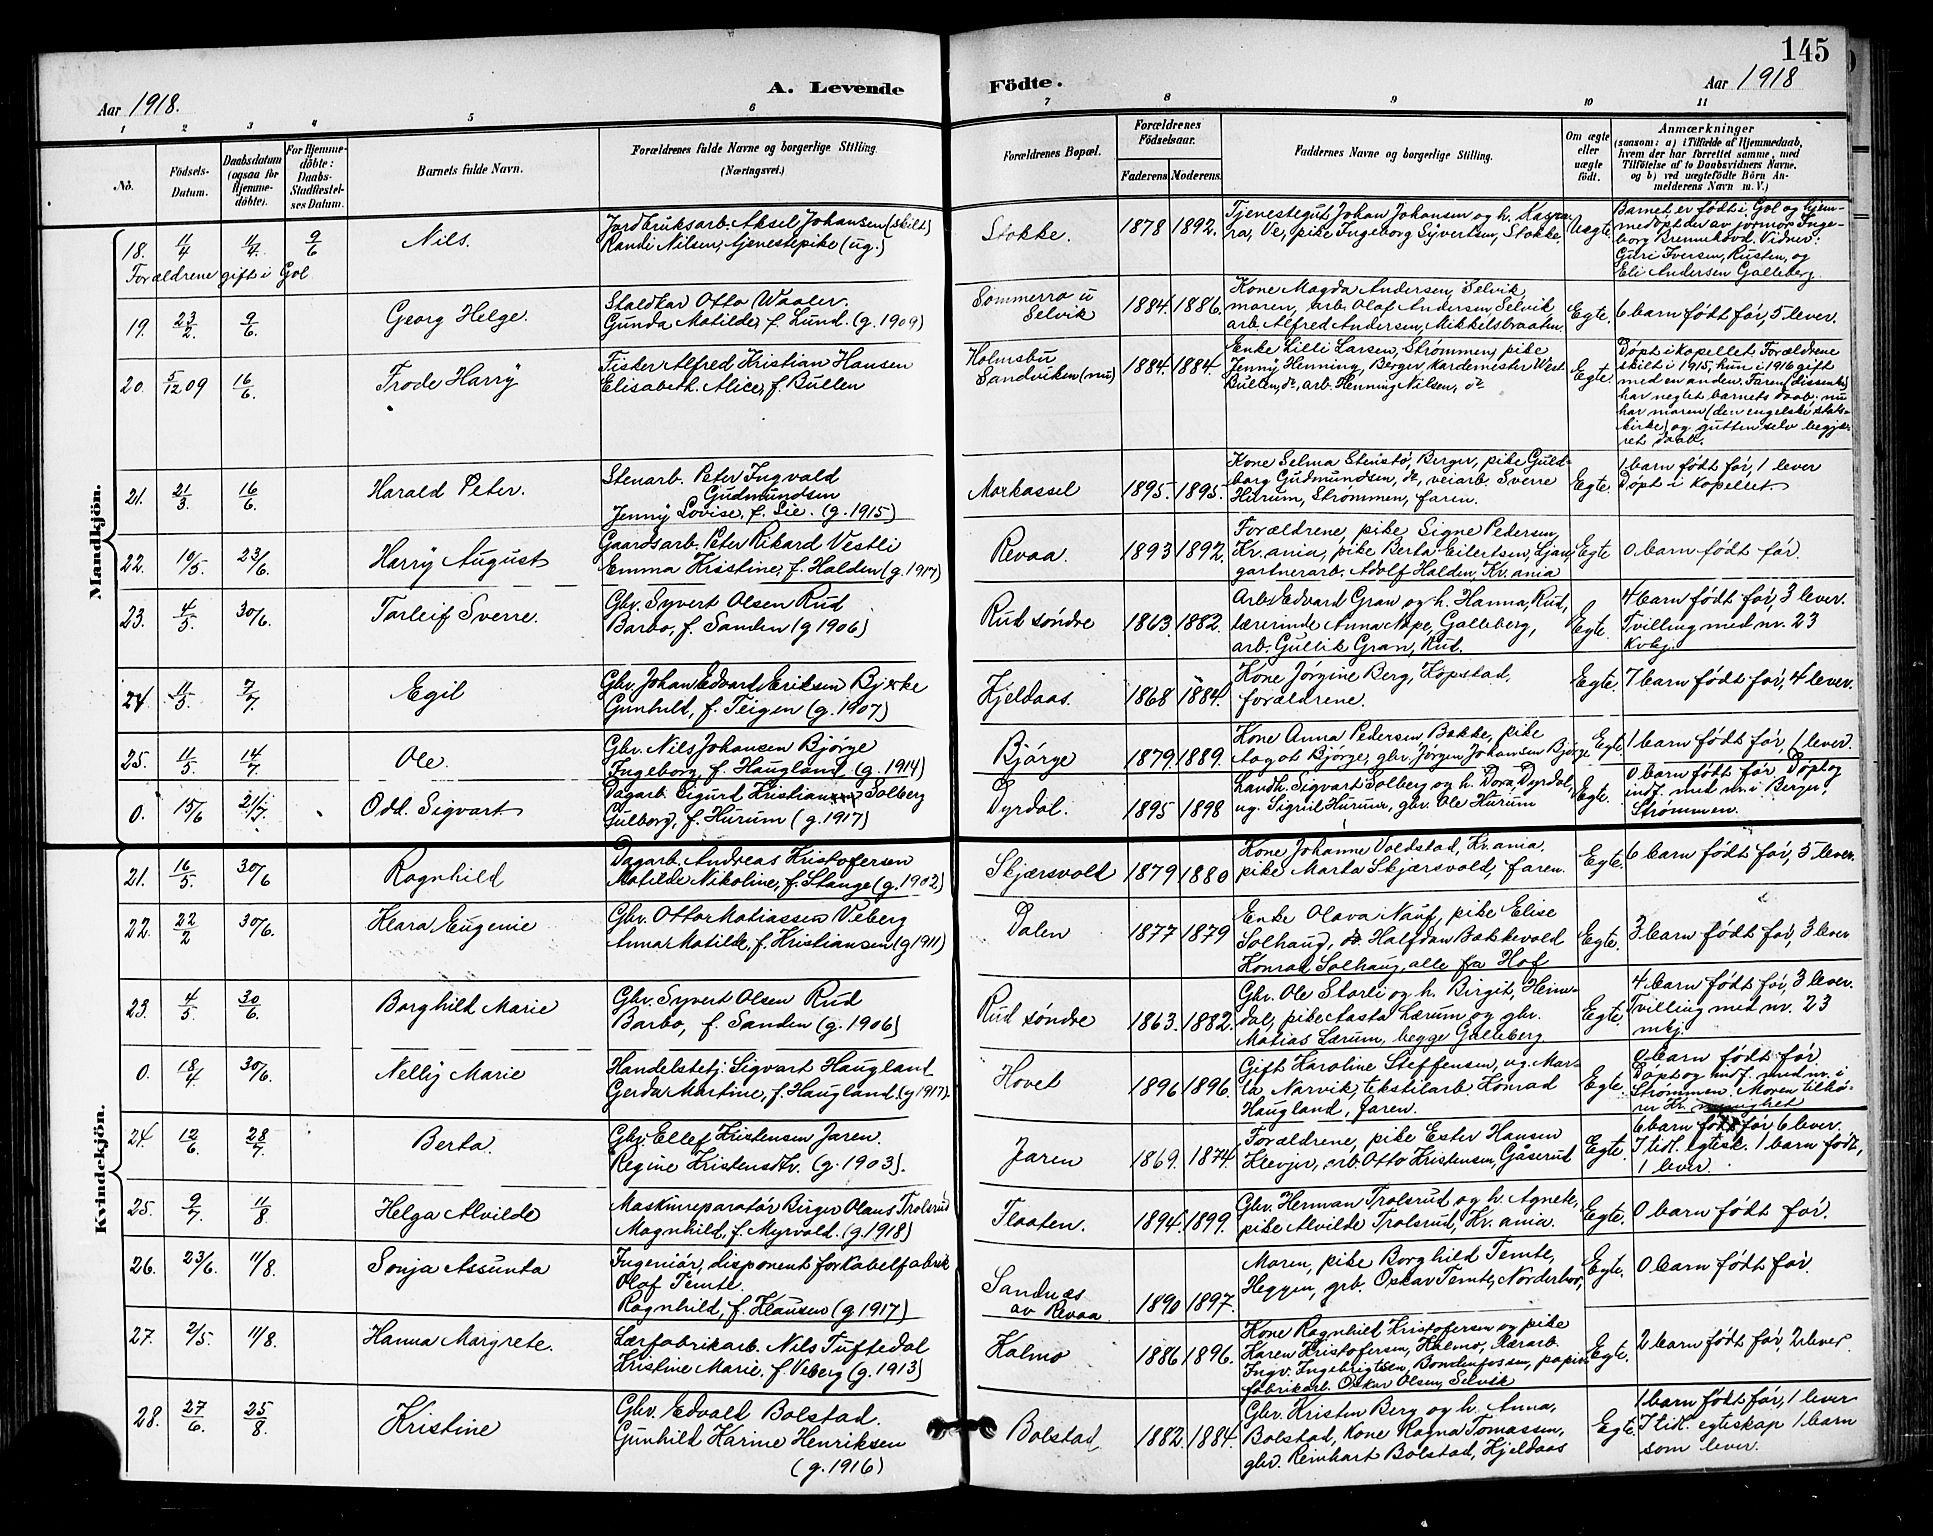 145
Aar 1918.
A. Levende
Födte.
Aar 1918
1 2 3 4 5 6 7 8 9 10 11
No.
Födsels-Datum.
Daabsdatum (ogsaa for Hjemmedöbte).
For Hjemmedöbte: Daabs-Stadfæstelses Datum.
Barnets fulde Navn.
Forældrenes fulde Navne og borgerlige Stilling. (Næringsvei.)
Forældrenes Bopæl.
Forældrenes Födselsaar.
Faderens. Moderens.
Faddernes Navne og borgerlige Stilling.
Om ægte eller uægte födt.
Anmærkninger
(saasom: a) i Tilfælde af Hjemmedaab, hvem der har forrettet samme, med Tilföielse af to Daabsvidners Navne. og b) ved uægtefödte Börn Anmelderens Navn m. V.)
Mandkjön.
18. 11/4 11/4 9/6 Nils.
Jordbruksarb. Aksel Johansen (skilt)
Randi Nilsen, tjenestepike (ug.)
Stokke. 1878 1892.
Tjenestegut Johan Johansen og h. Kaspara, Ve, pike Ingeborg Syvertsen, Stokke.
Uegte.
Barnet er født i Gol og hjemmedøpt der av jormor Ingeborg Brennhovd. Vidner: Guri Iversen, Rusten, og Eli Andersen Galleberg.
Forældrene gift i Gol
19. 23/2 9/6. Georg Helge.
Staldkar Otto Waaler.
Gunda Matilde, f. Lund. (g. 1909)
Sommerro u Selvik 1884. 1886.
Kone Magda Andersen, Selvik
moren, arb. Olaf Andersen, Selvik
arb. Alfred Andersen, Mikkelsbraaten.
Egte. 6 barn født før, 5 lever.
20. 5/12 09 16/6. Frode Harry
Fisker Alfred Kristian Hansen
Elisabeth Alice, f. Bullen
Holmsbu
Sandviken (nu) 1884. 1884.
Enke Lilli Larsen, Strømmen, pike
Jenny Henning, Berger, kardemester West
Bullen, do, arb. Henning Nilsen, do
Egte.
Døpt i kapellet. Forældrene
skilt i 1915, hun i 1916 gift
med en anden. Faren (dissenter)
har negtet barnets daab. nu
har moren (den engelske stats-
kirke) og gutten selv begjæ-
ret daab.
21. 21/3 16/6. Harald Peter.
Stenarb. Peter Ingvald
Gudmundsen
Jenny Lovise, f. Lie. (g. 1915)
Markassel 1895. 1895.
Kone Selma Stenstø, Berger, pike Guld-
borg Gudmundsen, do, veiarb. Sverre
Hurum, Strømmen, faren.
Egte. 1 barn født før, 1 lever
Døpt i Kapellet.
22. 10/5. 23/6. Harry August
Gaardsarb. Peter Rikard Vestli
Emma Kristine, f. Halden (g. 1917)
Revaa. 1893 1892.
Forældrene, pike Signe Pedersen,
Kr.ania, pike Berta Eilertsen, Ljan,
gartnerarb. Adolf Halden, Kr.ania
Egte 0 barn født før.
23. 4/5 30/6. Torleif Sverre.
Gbr. Syvert Olsen Rud
Barbo, f. Sanden (g 1906)
Rud søndre 1863. 1882.
Arb. Edvard Gran og h. Hanna, Rud,
lærerinde Anna Nøpe, Galleberg,
arb. Gullik Gran, Rud.
Egte. 4 barn født før, 3 lever.
Tvilling med nr. 23
kvkj.
24 11/5 7/7 Egil
Gbr. Johan Edvard Eriksen Bjerke
Gunhild, f. Teigen (g. 1907)
Kjeldaas. 1868 1884.
Kone Jørgine Berg, Kopstad,
forældrene.
Egte. 7 barn født før, 4 lever.
25. 11/5 14/7 Ole.
Gbr. Nils Johansen Bjørge
Ingeborg, f. Haugland (g. 1914)
Bjørge 1879. 1889.
Kone Anna Pedersen Bakke, pike
Aagot Bjørge, gbr. Jørgen Johansen Bjørge
Egte 1 barn født før, 1 lever.
0. 15/6 21/7. Odd Sigvart
Dagarb. Sigurd Kristian Solberg
Gulborg, f. Hurum (g. 1917)
Dyrdal. 1895 1898
Landh. Sigvart Solberg og h. Dora, Dyrdal,
ug. Sigrid Hurum, gbr. Ole Hurum
Egte. 0 barn født før. Døpt og
indf. med nr. i Berger,
Strømmen.
Kvindekjön.
21. 16/5. 30/6 Ragnhild
Dagarb. Andreas Kristofersen
Matilde Nikoline, f. Stange (g. 1902)
Skjærsvold 1879 1880
Kone Johanne Voldstad, Kr.ania.
pike Marta Skjærsvold, faren.
Egte. 6 barn født før, 5 lever.
22. 22/2 30/6. Klara Eugenie
Gbr. Otto Matiassen Veberg
Anna Matilde, f. Kristiansen (g 1911)
Dalen 1877 1879
Enke Olava Nauf, pike Elise
Solhaug, Halfdan Bakkevold
Konrad Solhaug, alle fra Hof
Egte. 3 barn født før, 3 lever
23. 4/5 30/6. Borghild Marie
Gbr. Syvert Olsen Rud
Barbo, f. Sanden (g. 1906)
Rud søndre 1863. 1882.
Gbr. Ole Storli og h. Birgit, Heim-
dal, pike Aasta Lærum og gbr.
Matias Lærum, begge Galleberg
Egte. 4 barn født før, 3 lever.
Tvilling med nr. 23
mkj.
0. 18/4 30/6. Nelly Marie
Handelsbetj. Sigvart Haugland
Gerda Martine, f. Haugland. (g 1917).
Hovet 1896 1896.
Gift Karoline Steffensen, ug. Mar-
ta Narvik, tekstilarb. Konrad
Haugland, faren.
Egte. 0 barn født før
Døpt og indf. med nr. i
Strømmen. Moren tilhø-
rer Kr.
24. 12/6 28/7 Berta.
Gbr. Ellef Kristensen Jaren.
Regine Kristensdtr. (g. 1903).
Jaren 1869. 1874.
Forældrene, pike Ester Hansen
Klevjer, arb. Otto Kristensen, Gåserud
Egte. 6 barn født før 6 lever.
I tidl. egtesk. 1 barn født,
1 lever.
25. 9/7 11/8 Helga Alvilde
Maskinreparatør Birger Olaus Trolsrud
Magnhild, f. Myrvold. (g. 1918)
Flaaten. 1894. 1899.
Gbr. Herman Trolsrud og h. Agnete,
pike Alvilde Trolsrud, Kr.ania.
Egte. 0 barn født før.
26. 23/6. 11/8. Sonja Assunta
Ingeniør, disponent for kabelfabrik
Olaf Temte.
Ragnhild, f. Klausen (g. 1917)
Sandnes
av Revaa 1890 1897.
Moren, pike Borghild Temte,
Heggen, grb. Oskar Temte, Norderhov,
Egte. 0 barn født før.
27. 2/5 11/8 Hanna Margrete.
Lærfabrikarb. Nils Tuftedal
Kristine Marie, f. Veberg (g. 1913)
Kalmo 1886 1896.
Kone Ragnhild Kristofersen og pike
Karen Kristofersen, Kalmo, Lærarb.
Ingv. Ingebrigtsen, Bondenfossen, papir-
fabrikarb. Oskar Olsen, Selvik
Egte. 2 barn født før, 2 lever
28. 27/6 25/8 Kristine
Gbr. Edvald Bolstad.
Gunhild Karine Henriksen
(g. 1916)
Bolstad 1882. 1884.
Gbr. Kristen Berg og h. Anna,
Bolstad, Kone Ragna Tomassen,
gbr. Reinhart Bolstad, Kjeldaas
Egte. 1 barn født før, 1 lever
I tidl. egteskap 1 barn
som lever.